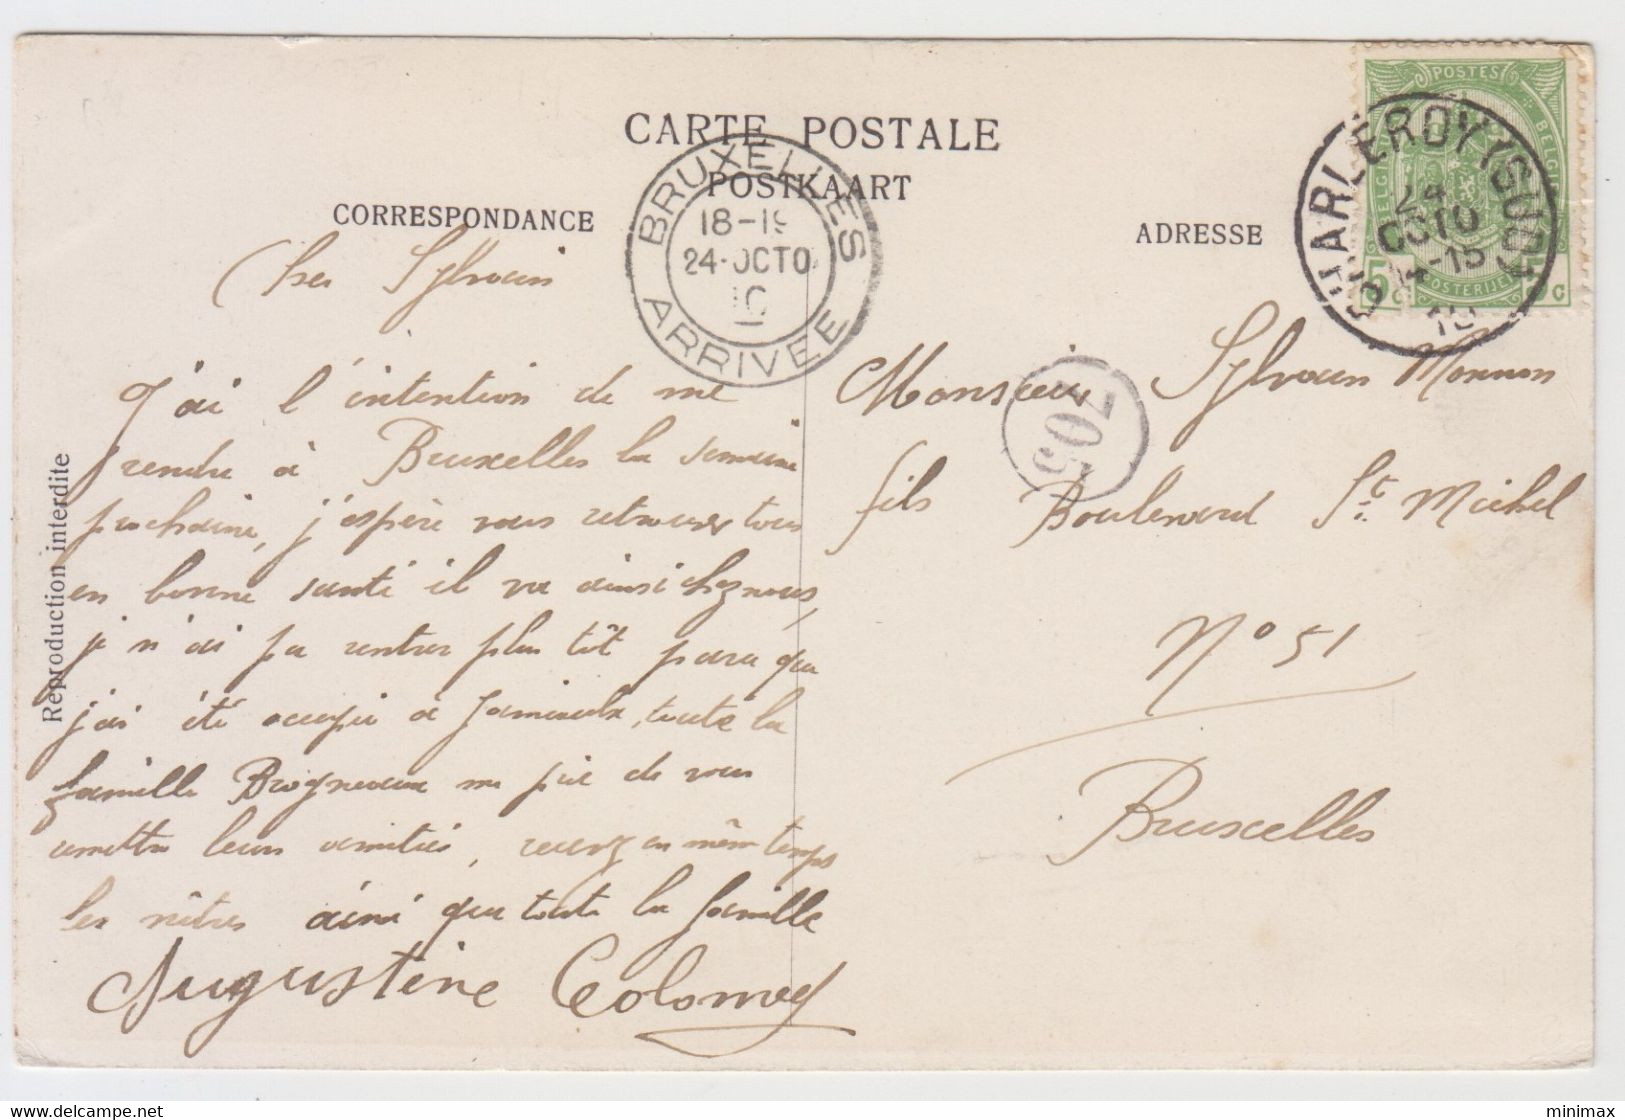 CARTE POSTALE
POSTKAART
CORRESPONDANCE
ADRESSE
Reproduction interdite
BRUXELLES
18-19
24 OCTO
10
ARRIVEE
CHARLEROY (SUD)
24
OCTO
14-15
10
POSTES
BELGIQUE
BELGIE
POSTERIJEN
5c
5c
705
Cher Sylvain
J'ai l'intention de me
rendre à Bruxelles la semaine
prochaine, j'espère vous retrouver tous
en bonne santé il va ainsi chez nous,
je n'ai pu rentrer plus tôt parce que
j'ai été occupé à Jamioulx, toute la
famille Brogneaux me prie de vous
remettre leurs amitiés, recevez en même temps
les nôtres ainsi que toute la famille
Augustine
Monsieur Sylvain
fils Boulevard St Michel
N° 51
Bruxelles
minimax